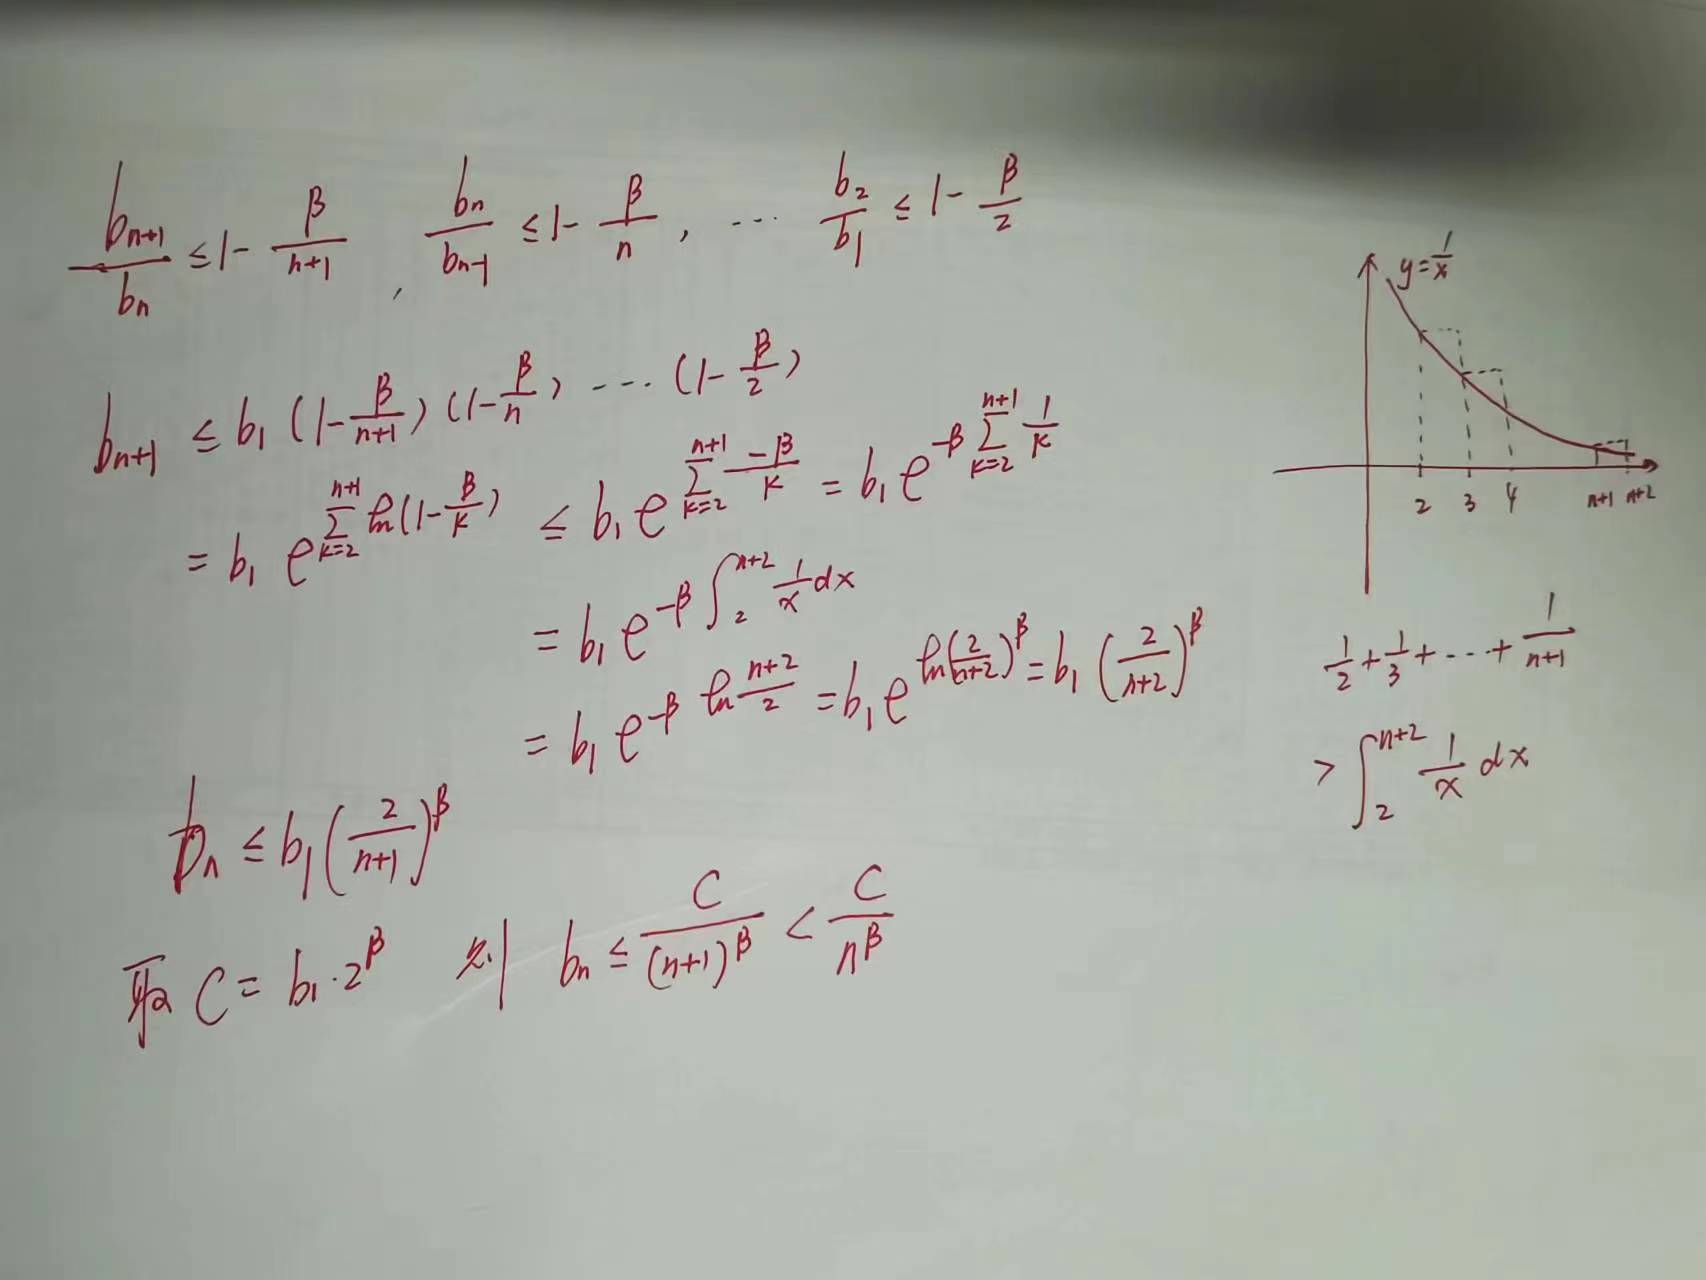 b_{n+1}/b_n ≤ 1 - β/(n+1) , b_n/b_{n-1} ≤ 1 - β/n , ... b_2/b_1 ≤ 1 - β/2
b_{n+1} ≤ b_1 (1 - β/(n+1)) (1 - β/n) ... (1 - β/2)
= b_1 e^{∑_{k=2}^{n+1} ln(1 - β/k)} ≤ b_1 e^{∑_{k=2}^{n+1} -β/k} = b_1 e^{-β ∑_{k=2}^{n+1} 1/k}
= b_1 e^{-β ∫_2^{n+2} 1/x dx}
= b_1 e^{-β ln (n+2)/2} = b_1 e^{ln(2/(n+2))^β} = b_1 (2/(n+2))^β
b_n ≤ b_1 (2/(n+1))^β
取 C = b_1 · 2^β 则 b_n ≤ C/(n+1)^β < C/n^β
y = 1/x
2 3 4 n+1 n+2
1/2 + 1/3 + ... + 1/(n+1)
> ∫_2^{n+2} 1/x dx